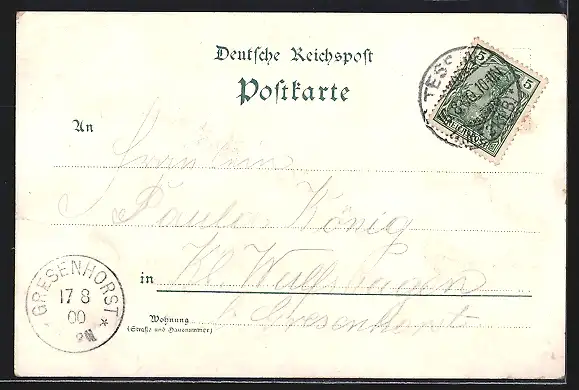 Deutsche Reichspost
Postkarte
5 5
TESSIN
An
Fräulein
Paula König
in Kl. Wulfshagen
b. Gresenhorst
Wohnung
(Straße und Hausnummer)
GRESENHORST
17 8
00
N